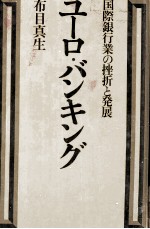 国際銀行業の挫折と発展
ユーロ・バンキング
布目真生